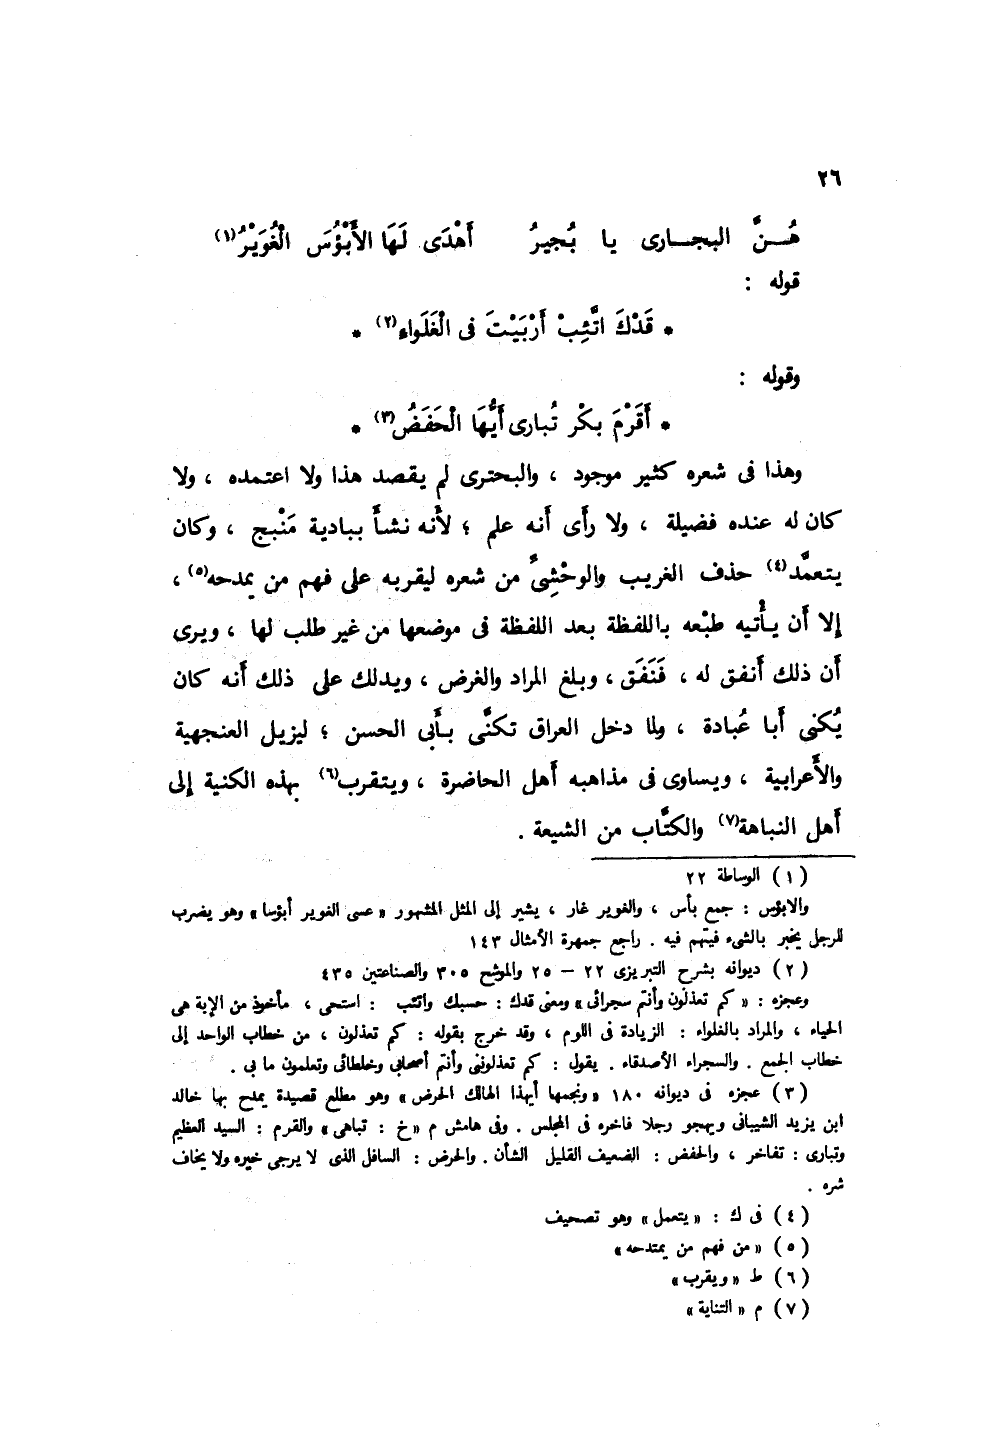 ٢٦
هُـنَّ البجـارى يا بُجيرُ أَهْدَى لَهَا الأَبْؤُسَ الْغُوَيْرُ(١)
قوله :
* قَدْكَ اتَّئِبْ أَرْبَيْتَ فى الْغَلَواءِ(٢) *
وقوله :
* أَقَرْمَ بكْر تُبارى أَيُّهَا الْحَفَضُ(٣) *
وهذا فى شعره كثير موجود ، والبحترى لم يقصد هذا ولا اعتمده ، ولا
كان له عنده فضيلة ، ولا رأى أنه علم ؛ لأنه نشأ ببادية مَنْبج ، وكان
يتعمَّد(٤) حذف الغريب والوحْشِىّ من شعره ليقربه على فهم من يمدحه(٥) ،
إلا أن يأتيه طبْعه باللفظة بعد اللفظة فى موضعها من غير طلب لها ، ويرى
أن ذلك أنفق له ، فَنَفَق ، وبلغ المراد والغرض ، ويدلك على ذلك أنه كان
يُكنى أبا عُبادة ، ولما دخل العراق تكنَّى بأبى الحسن ؛ ليزيل العنجهية
والأَعرابية ، ويساوى فى مذاهبه أهل الحاضرة ، ويتقرب(٦) بهذه الكنية إلى
أهل النباهة(٧) والكتَّاب من الشيعة .
(١) الوساطة ٢٢
والابؤس : جمع بأس ، والغوير غار ، يشير إلى المثل المشهور « عسى الغوير أبؤسا » وهو يضرب
للرجل يخبر بالشىء فيتهم فيه . راجع جمهرة الأمثال ١٤٣
(٢) ديوانه بشرح التبريزى ٢٢ – ٢٥ والموشح ٣٠٥ والصناعتين ٤٣٥
وعجزه : « كم تعذلون وأنتم سجرائى » ومعنى قدك : حسبك واتئب : استحى ، مأخوذ من الإبة هى
الحياء ، والمراد بالغلواء : الزيادة فى اللوم ، وقد خرج بقوله : كم تعذلون ، من خطاب الواحد إلى
خطاب الجمع . والسجراء الأصدقاء . يقول : كم تعذلوننى وأنتم أصحابى وخلطائى وتعلمون ما بى .
(٣) عجزه فى ديوانه ١٨٠ « ونجمها أيهذا الهالك الحرض » وهو مطلع قصيدة يمدح بها خالد
ابن يزيد الشيبانى ويهجو رجلا فاخره فى المجلس . وفى هامش م « خ : تباهى » والقرم : السيد العظيم
وتبارى : تفاخر ، والحفض : الضعيف القليل الشأن . والحرض : السافل الذى لا يرجى خيره ولا يخاف
شره .
(٤) فى ك : « يتعمل » وهو تصحيف
(٥) « من فهم من يمتدحه »
(٦) ط « ويقرب »
(٧) م « التناية »